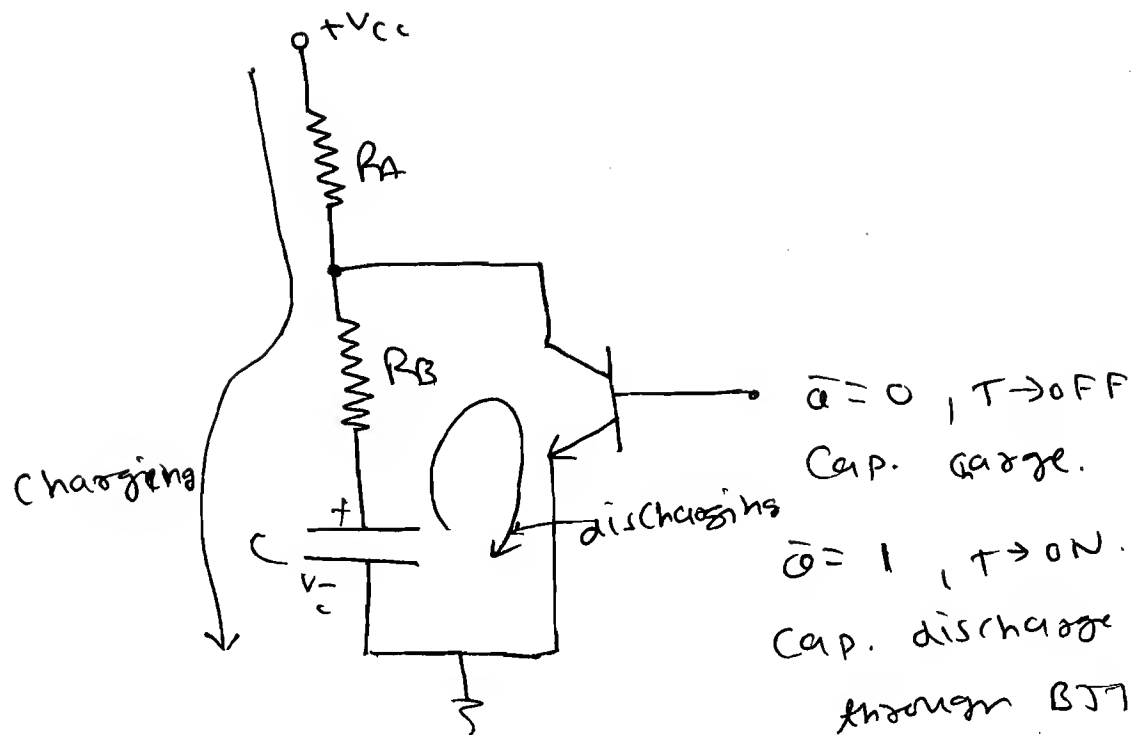 +Vcc
RA
RB
Charging
+
C
Vc
-
discharging
Q̅ = 0 , T→OFF
Cap. Charge.
Q̅ = 1 , T→ON.
Cap. discharge
through BJT